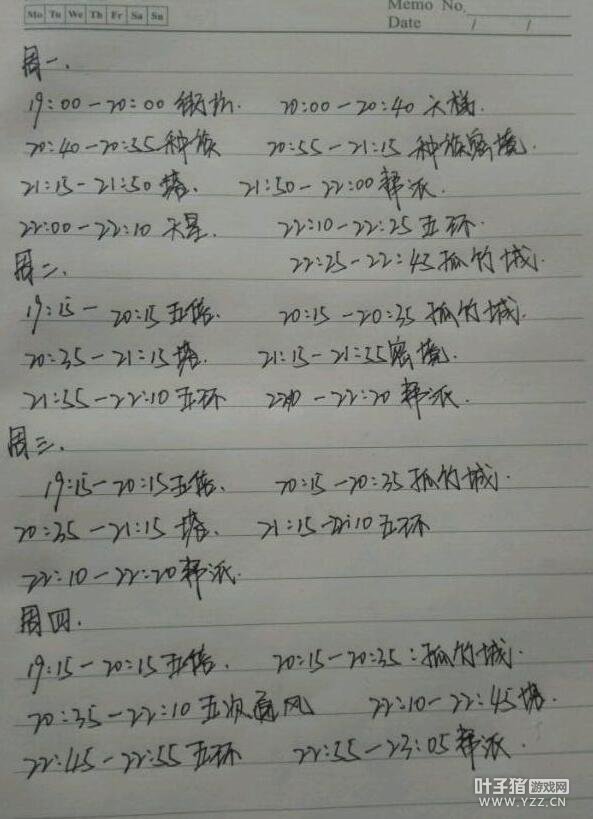 Mo Tu We Th Fr Sa Su
Memo No.
Date / /
周一.
19:00-20:00 20:00-20:40
20:40-20:55 种族 20:55-21:15 种族密境.
21:15-21:50 塔. 21:50-22:00 帮派.
22:00-22:10 天星. 22:10-22:25 五环.
周二. 22:25-22:45 孤竹城.
19:15-20:15 五倍. 20:15-20:35 孤竹城.
20:35-21:15 塔. 21:15-21:55 密境.
21:55-22:10 五环 -22:20 帮派.
周三.
19:15-20:15 五倍. 20:15-20:35 孤竹城.
20:35-21:15 塔. 21:15-22:10 五环
22:10-22:20 帮派.
周四.
19:15-20:15 五倍. 20:15-20:35:孤竹城.
20:35-22:10 五 22:10-22:45 塔.
22:45-22:55 五环 22:55-23:05 帮派.
叶子猪 游戏网
WWW.YZZ.CN